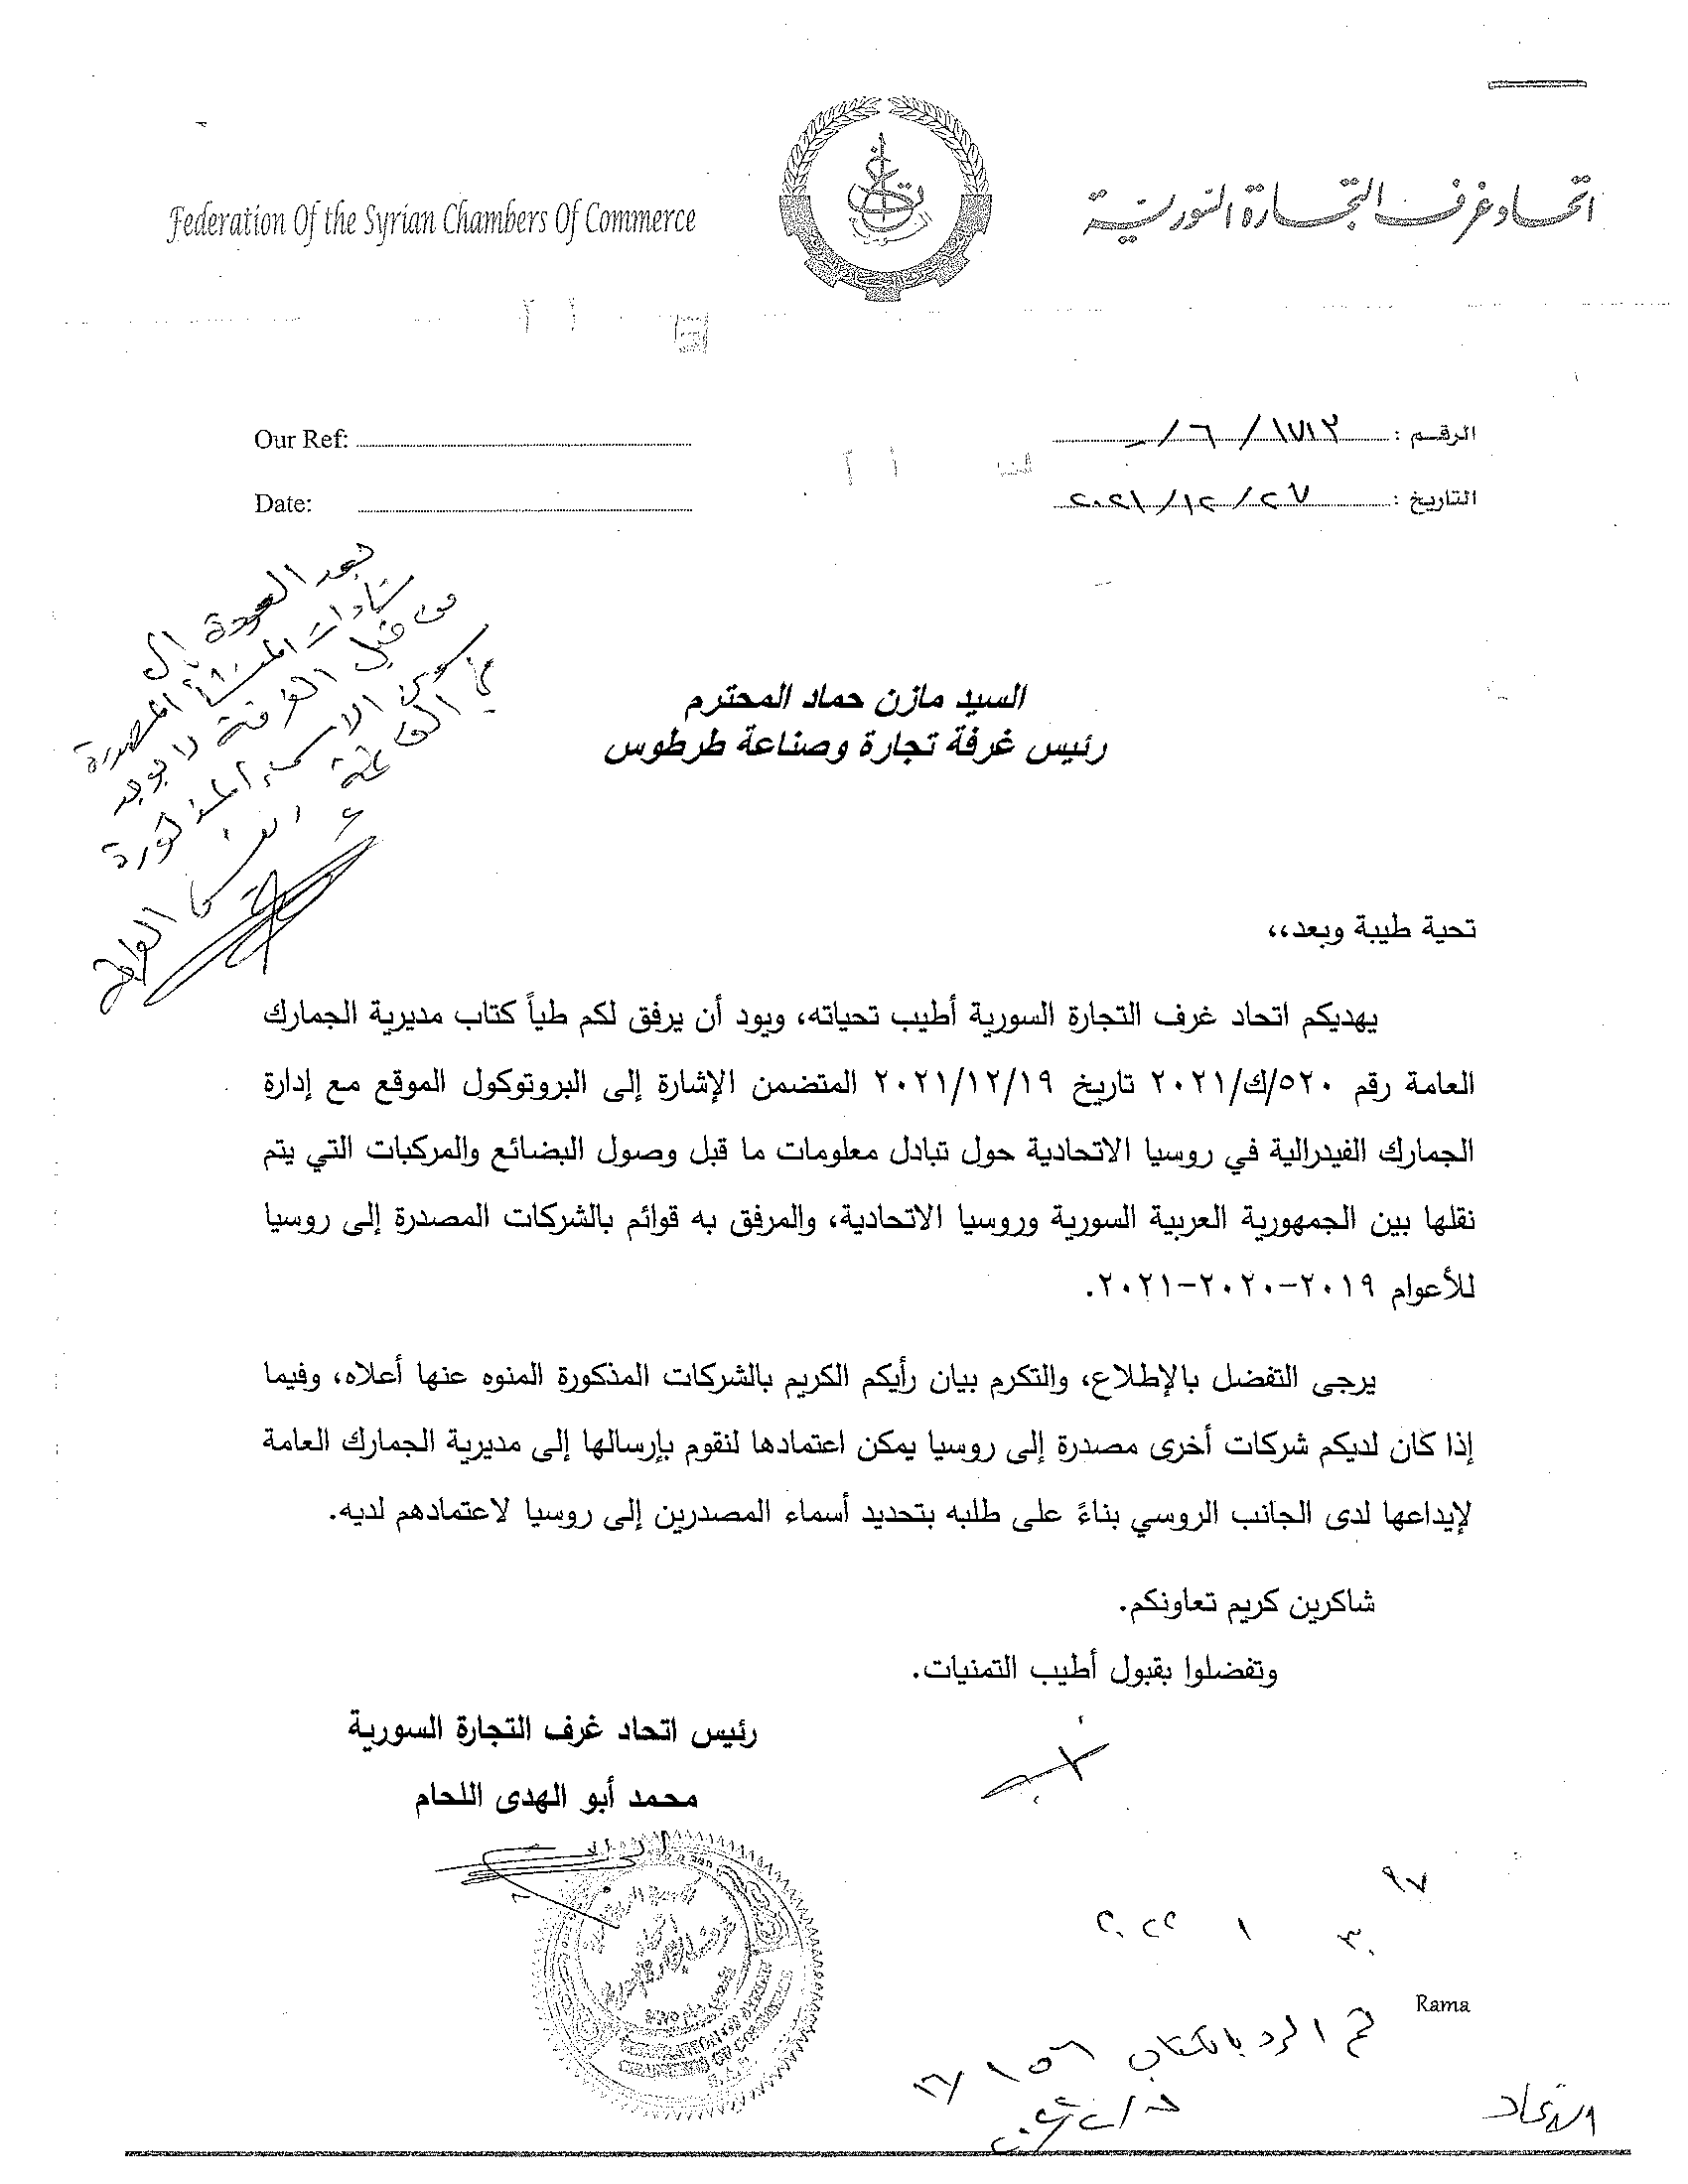 Federation Of the Syrian Chambers Of Commerce
اتحاد غرف التجارة السورية
Our Ref:
الرقم : ١٧١٣ / ٦ / -
Date:
التاريخ : ٢٧ / ١٢ / ٢٠٢١
بعد العودة إلى
شهادات المنشأ المصدرة
من قبل الغرفة لا يوجد
سوى الأسماء المذكورة
في القائمة
السيد مازن حماد المحترم
رئيس غرفة تجارة وصناعة طرطوس
تحية طيبة وبعد،،
يهديكم اتحاد غرف التجارة السورية أطيب تحياته، ويود أن يرفق لكم طياً كتاب مديرية الجمارك
العامة رقم ٥٢٠/ك/٢٠٢١ تاريخ ٢٠٢١/١٢/١٩ المتضمن الإشارة إلى البروتوكول الموقع مع إدارة
الجمارك الفيدرالية في روسيا الاتحادية حول تبادل معلومات ما قبل وصول البضائع والمركبات التي يتم
نقلها بين الجمهورية العربية السورية وروسيا الاتحادية، والمرفق به قوائم بالشركات المصدرة إلى روسيا
للأعوام ٢٠١٩-٢٠٢٠-٢٠٢١.
يرجى التفضل بالإطلاع، والتكرم بيان رأيكم الكريم بالشركات المذكورة المنوه عنها أعلاه، وفيما
إذا كان لديكم شركات أخرى مصدرة إلى روسيا يمكن اعتمادها لنقوم بإرسالها إلى مديرية الجمارك العامة
لإيداعها لدى الجانب الروسي بناءً على طلبه بتحديد أسماء المصدرين إلى روسيا لاعتمادهم لديه.
شاكرين كريم تعاونكم.
وتفضلوا بقبول أطيب التمنيات.
رئيس اتحاد غرف التجارة السورية
محمد أبو الهدى اللحام
٩٧
٣ ١ ٢٠٢٢
Rama
تم الرد بالكتاب
الاتحاد